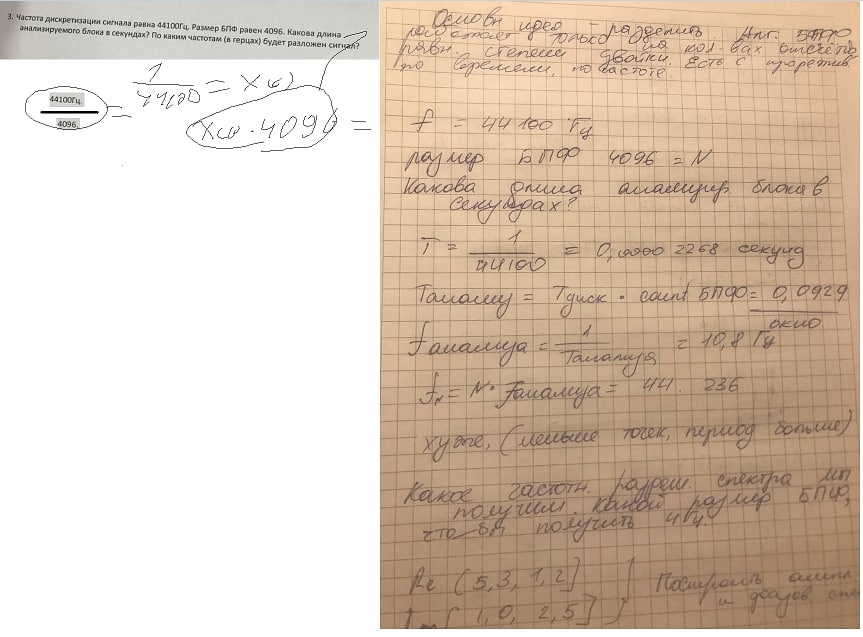 3. Частота дискретизации сигнала равна 44100Гц. Размер БПФ равен 4096. Какова длина
анализируемого блока в секундах? По каким частотам (в герцах) будет разложен сигнал?
44100Гц.
4096.
=
1
44100
= x(с)
x(с) · 4096 =
Основн идея – разделить. Алг. БПФ
работает только на кол-вах отсчётов
равн. степени двойки. Есть с прорежив.
по времени, по частоте.
f = 44100 Гц
размер БПФ 4096 = N
Какова длина анализир. блока в
секундах?
T = 1 / 44100 = 0,0000 2268 секунд
Tанализ = Tдиск · count БПФ = 0,0929
окно
fанализа = 1 / Tанализа = 10,8 Гц
fN = N · fанализа = 44. 236
хуже, (меньше точек, период больше)
Какое частотн. разреш. спектра мы
получим. Какой размер БПФ,
что бы получить 4Гц.
Re (5,3, 1,2]
1,0, 2,5]
Построить ампл
и фазов. спе